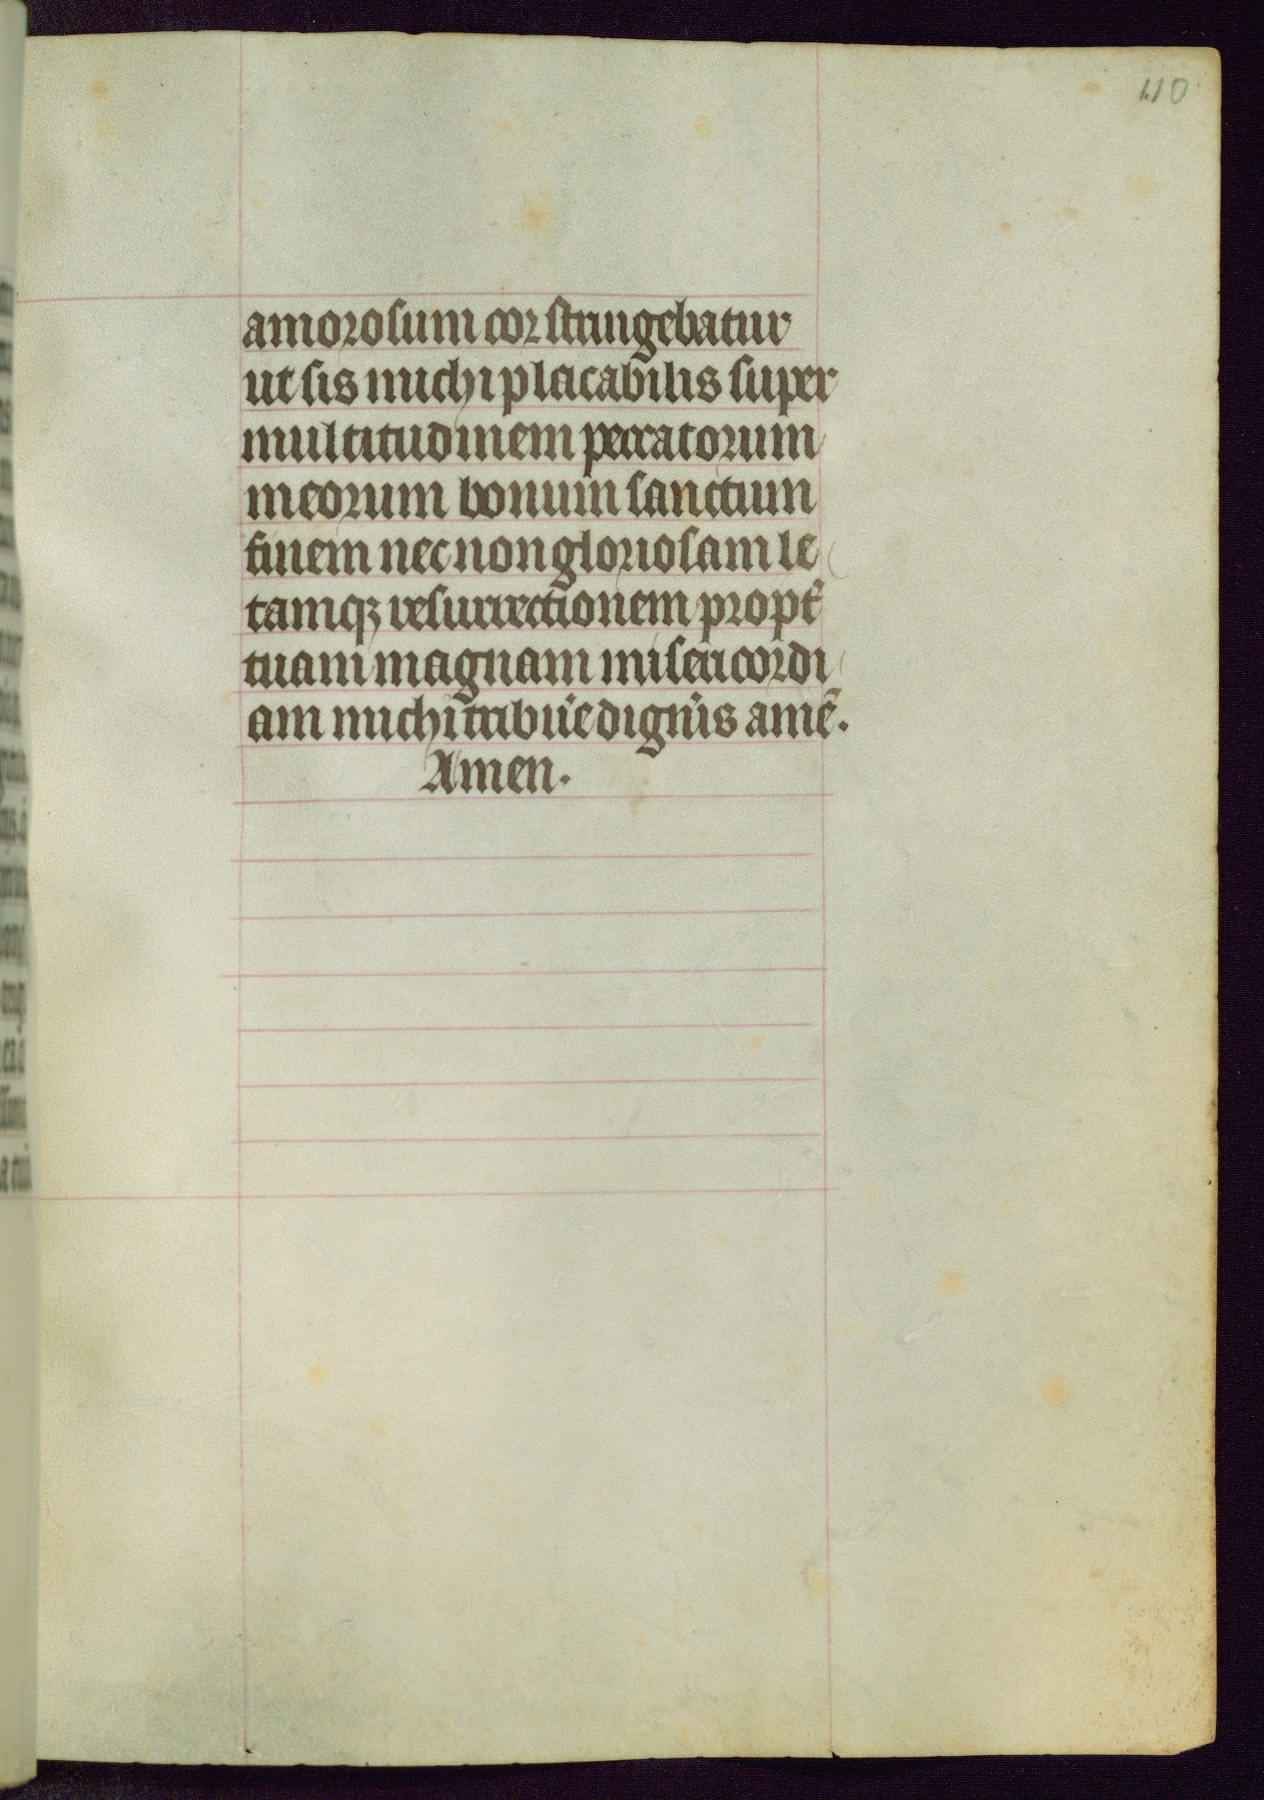 110
amorosum cor stringebatur
ut sis michi placabilis super
multitudinem peccatorum
meorum bonum sanctum
finem nec non gloriosam le
tamqꝫ resurrectionem propt̃
tuam magnam misericordi
am michi tribue digneris amẽ.
Amen.